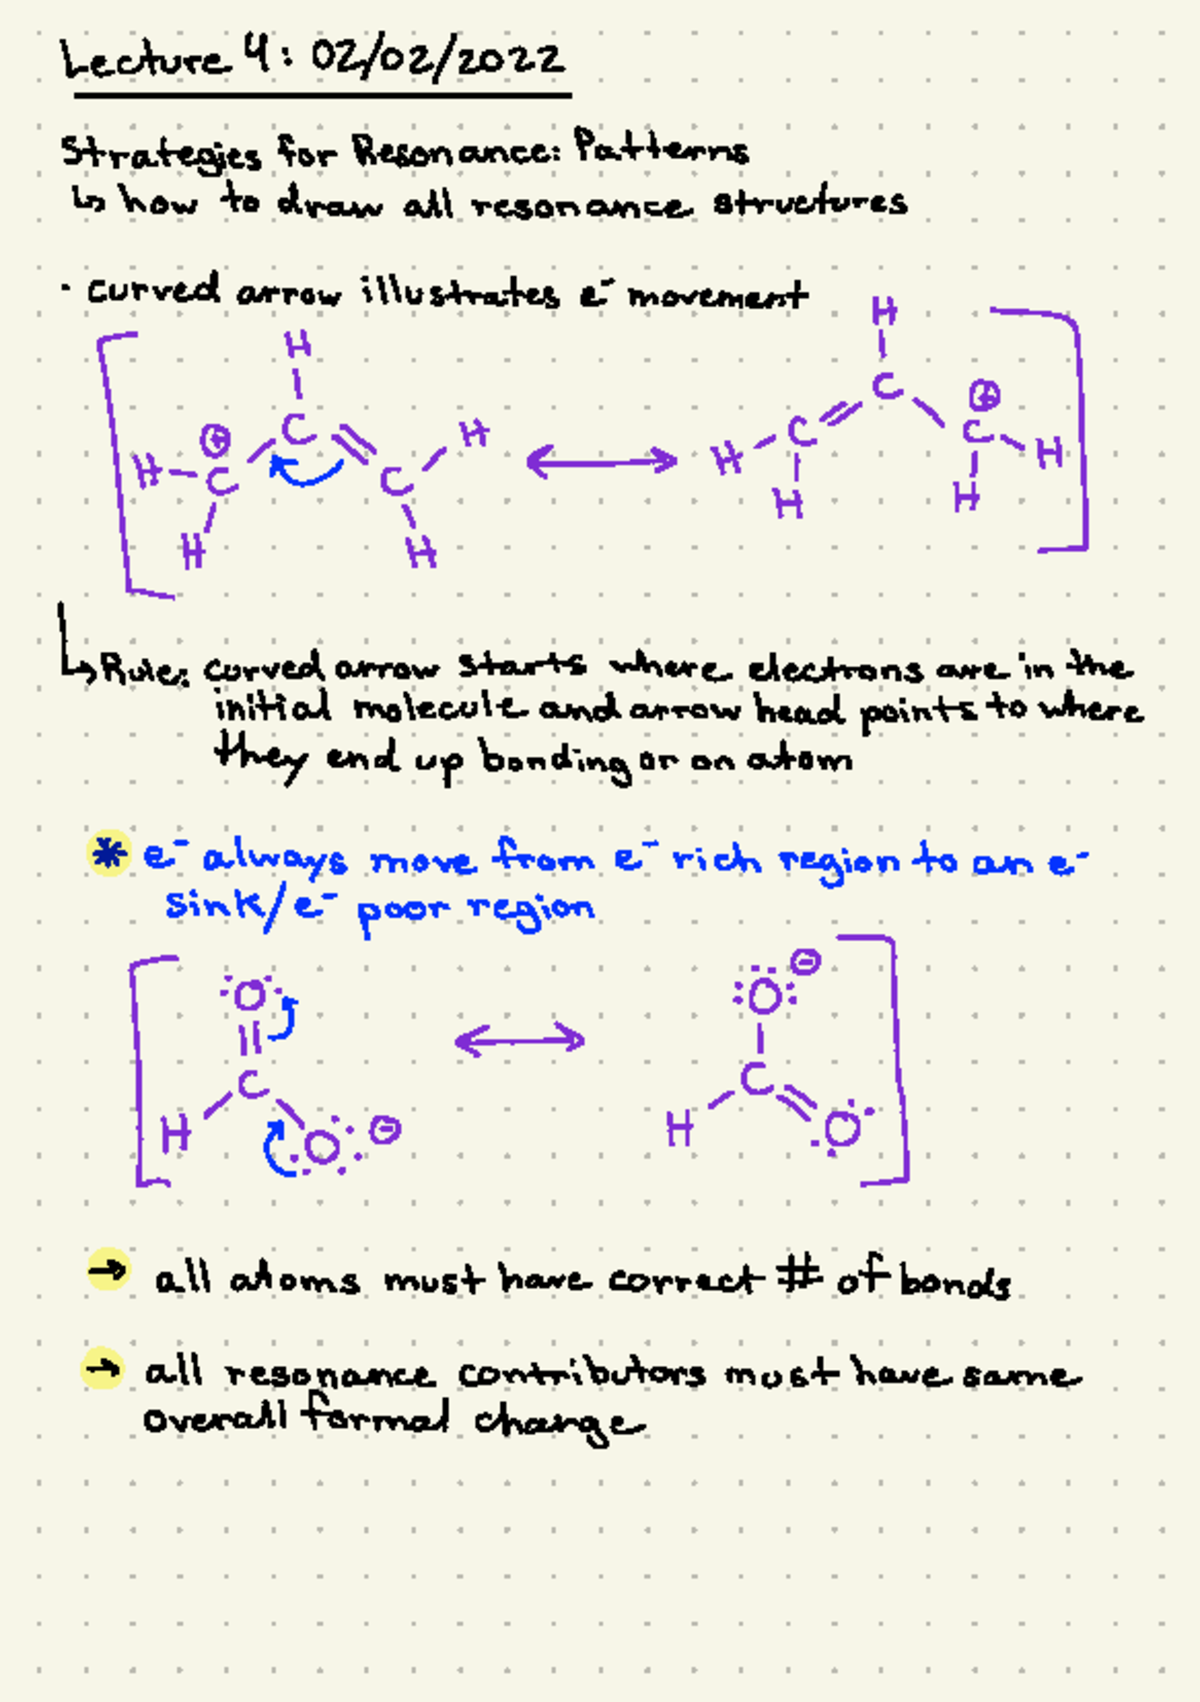 Lecture 4: 02/02/2022
Strategies for Resonance: Patterns
↳ how to draw all resonance structures
· curved arrow illustrates e⁻ movement
H
H
C
⊕
C
⊕
H
C
H
H
C
C
C
H
H
H
H
H
↳ Rule: curved arrow starts where electrons are in the
initial molecule and arrow head points to where
they end up bonding or on atom
* e⁻ always move from e⁻ rich region to an e⁻
sink/e⁻ poor region
O
O ⊖
C
C
H
O ⊖
H
O
→ all atoms must have correct # of bonds
→ all resonance contributors must have same
overall formal change